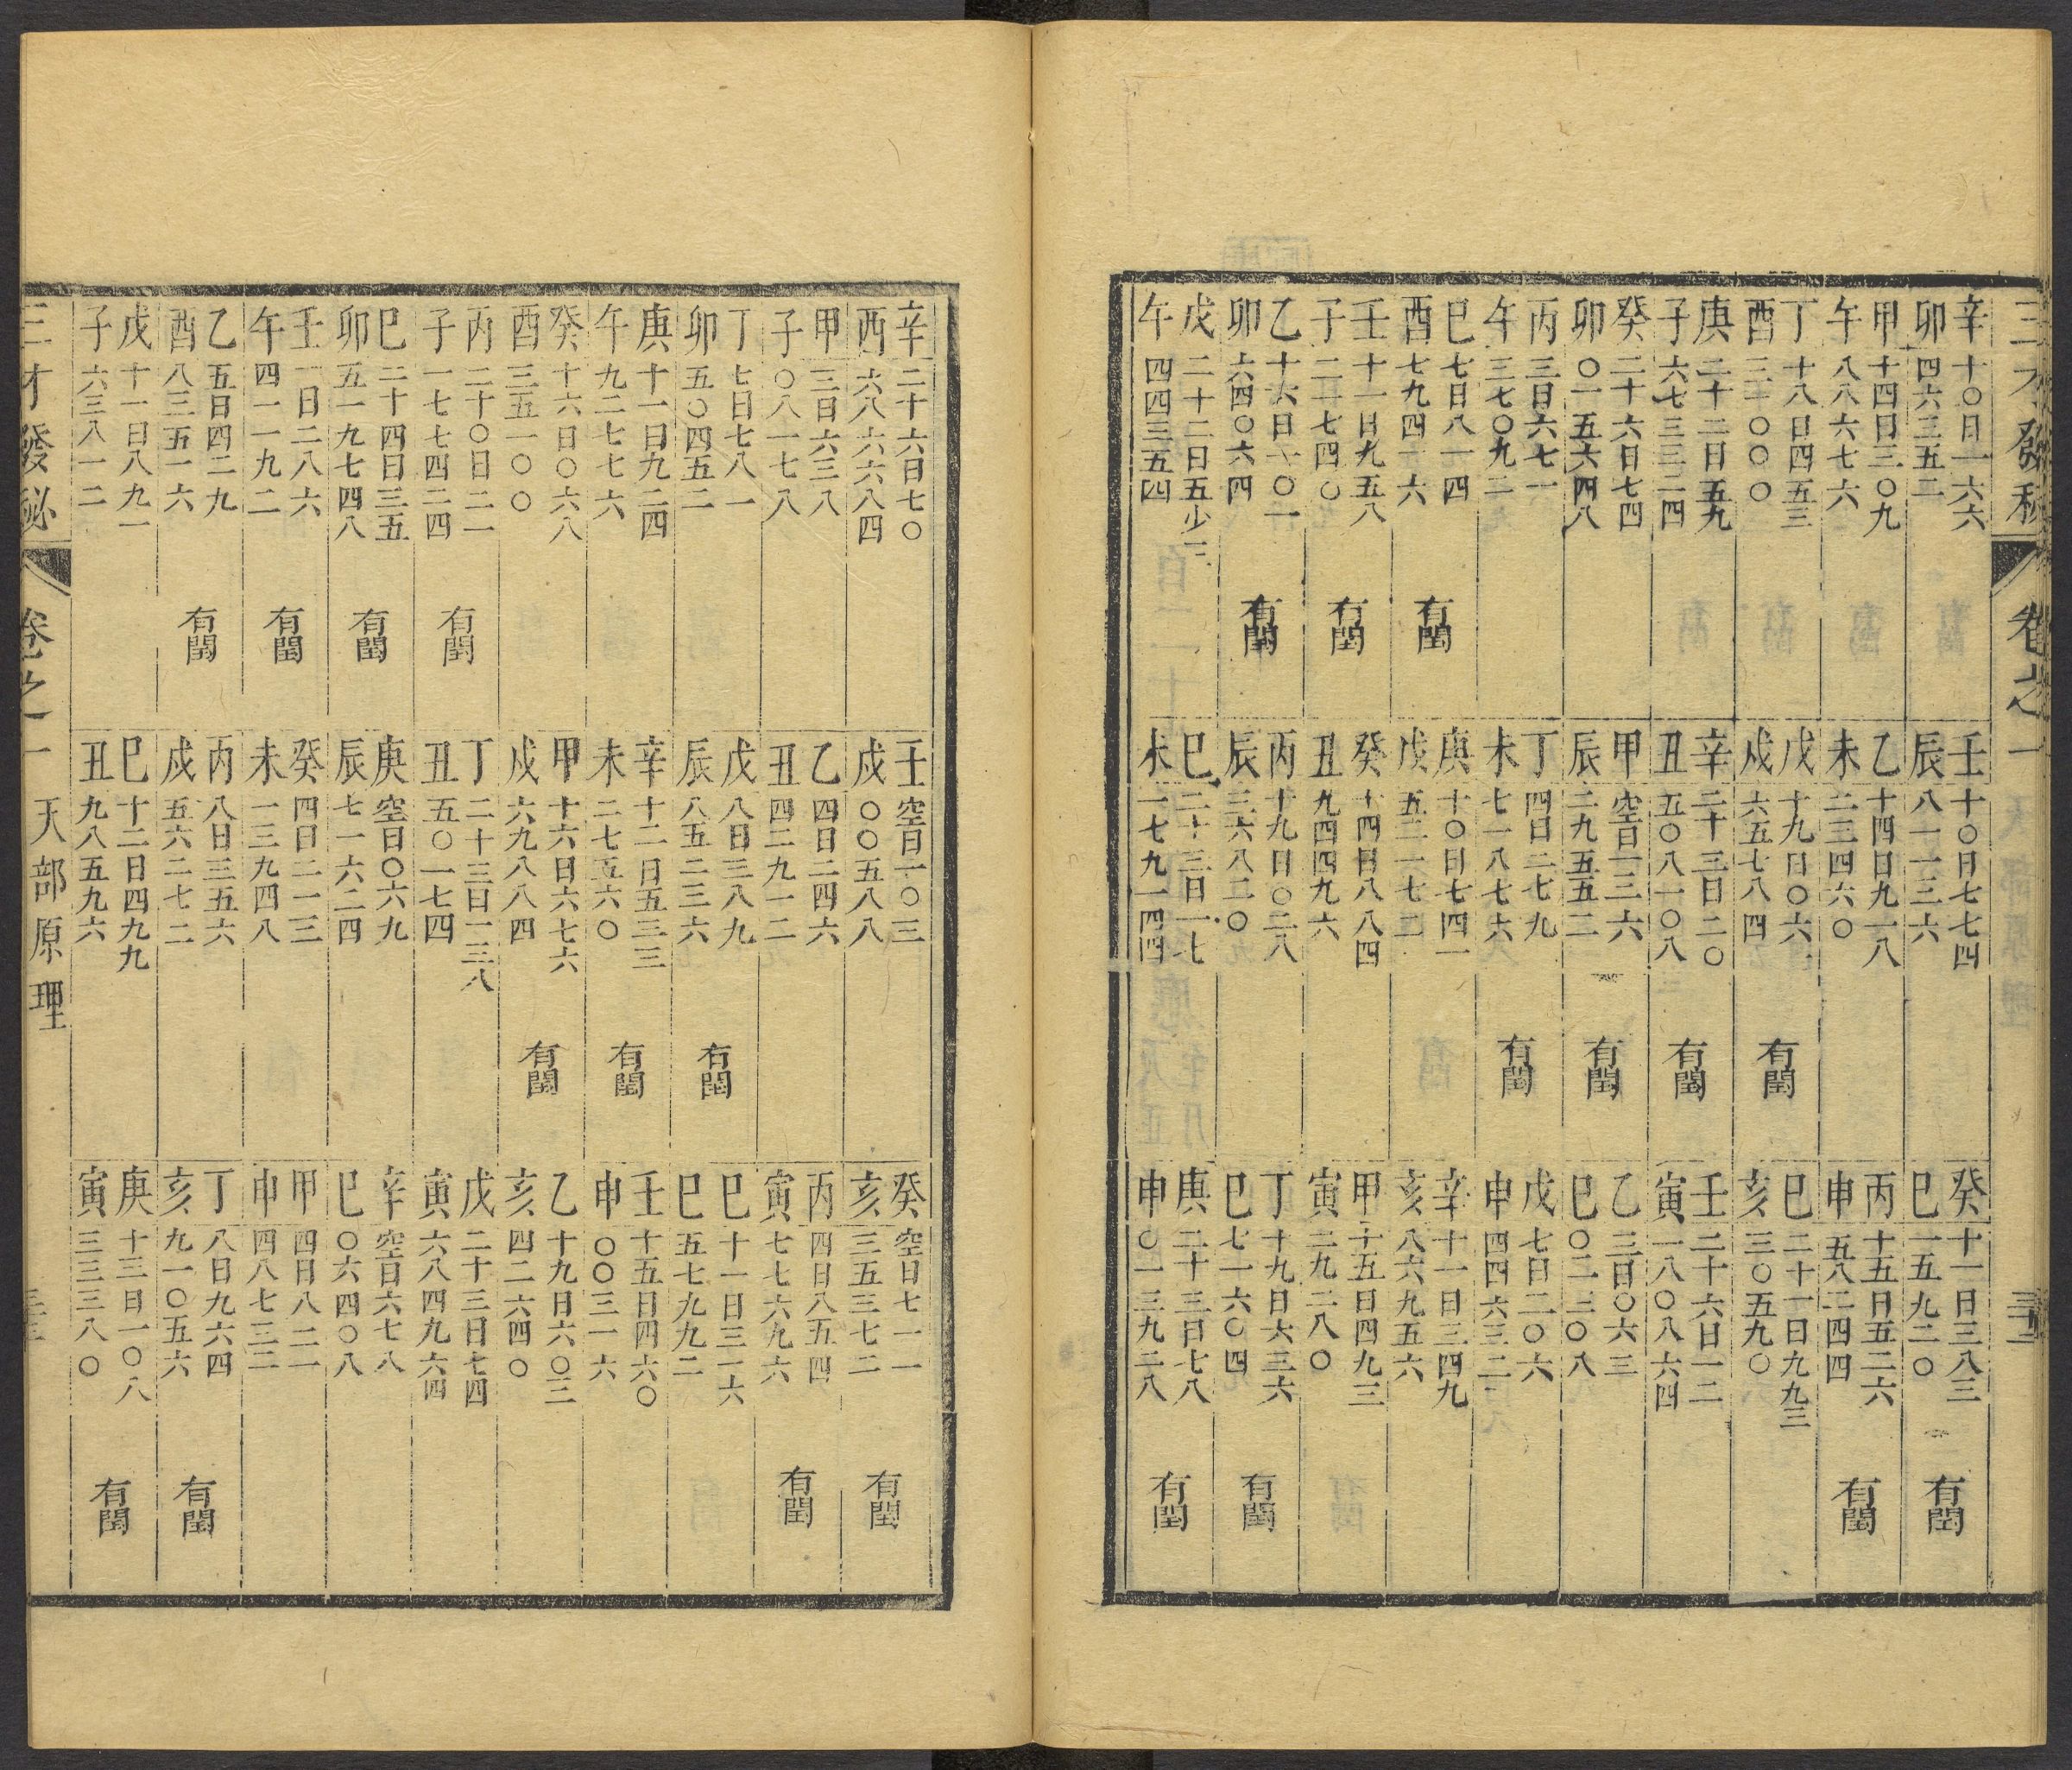 三才發秘
卷之一
辛十〇日一六六
卯四六三五二
壬十〇日七七四
辰八一一三六
癸十一日三八三
巳一五九二〇
有閏
甲十四日三〇九
午八八六七六
乙十四日九一八
未二三四六〇
丙十五日五二六
申五八二四四
有閏
丁十八日四五三
酉三一〇〇〇
戊十九日〇六
戌六五七八四
有閏
巳二十一日九九三
亥三〇五九〇
庚二十二日五九
子六七三三二四
辛二十三日二〇
丑五〇八一〇八
有閏
壬二十六日一二
寅一八〇八六四
癸二十六日七四
卯〇一五六四八
甲空日一三六
辰二九五五二
有閏
乙三日〇六三
巳〇二二〇八
丙三日六七一
午三七〇九二
丁四日二七九
未七一八七六
有閏
戊七日二〇六
申四四六三二
巳七日八一四
酉七九四一六
有閏
庚十〇日七四一
戌五二一七二
辛十一日三四九
亥八六九五六
壬十一日九五八
子二一七四〇
有閏
癸十四日八八四
丑九四四九六
甲十五日四九三
寅二九二八〇
乙十六日一〇一
卯六四〇六四
有閏
丙十九日〇二八
辰三六八二〇
丁十九日六三六
巳七一六〇四
有閏
戊二十二日五少二
午四四三五四
巳二十三日一七
未一七九一四四
庚二十三日七八
申〇一三九二八
有閏
辛二十六日七〇
酉六八六六八四
壬空日一〇三
戌〇〇五八八
癸空日七一一
亥三五三七二
有閏
甲三日六三八
子〇八一七八
乙四日二四六
丑四二九一二
丙四日八五四
寅七七六九六
有閏
丁七日七八一
卯五〇四五二
戊八日三八九
辰八五二三六
有閏
巳十一日三一六
巳五七九九二
庚十一日九二四
午九二七七六
辛十二日五三三
未二七五六〇
有閏
壬十五日四六〇
申〇〇三一六
癸十六日〇六八
酉三五一〇〇
甲十六日六七六
戌六九八八四
有閏
乙十九日六〇三
亥四二六四〇
丙二十〇日二一
子一七七四二四
有閏
丁二十三日一三八
丑五〇一七四
戊二十三日七四
寅六八四九六四
巳二十四日三五
卯五一九七四八
有閏
庚空日〇六九
辰七一六二四
辛空日六七八
巳〇六四〇八
壬一日二八六
午四一一九二
有閏
癸四日二一三
未一三九四八
甲四日八二一
申四八七三二
乙五日四二九
酉八三五一六
有閏
丙八日三五六
戌五六二七二
丁八日九六四
亥九一〇五六
有閏
戊十一日八九一
子六三八一二
巳十二日四九九
丑九八五九六
庚十三日一〇八
寅三三三八〇
有閏
三才發祕
卷之一
天部原理